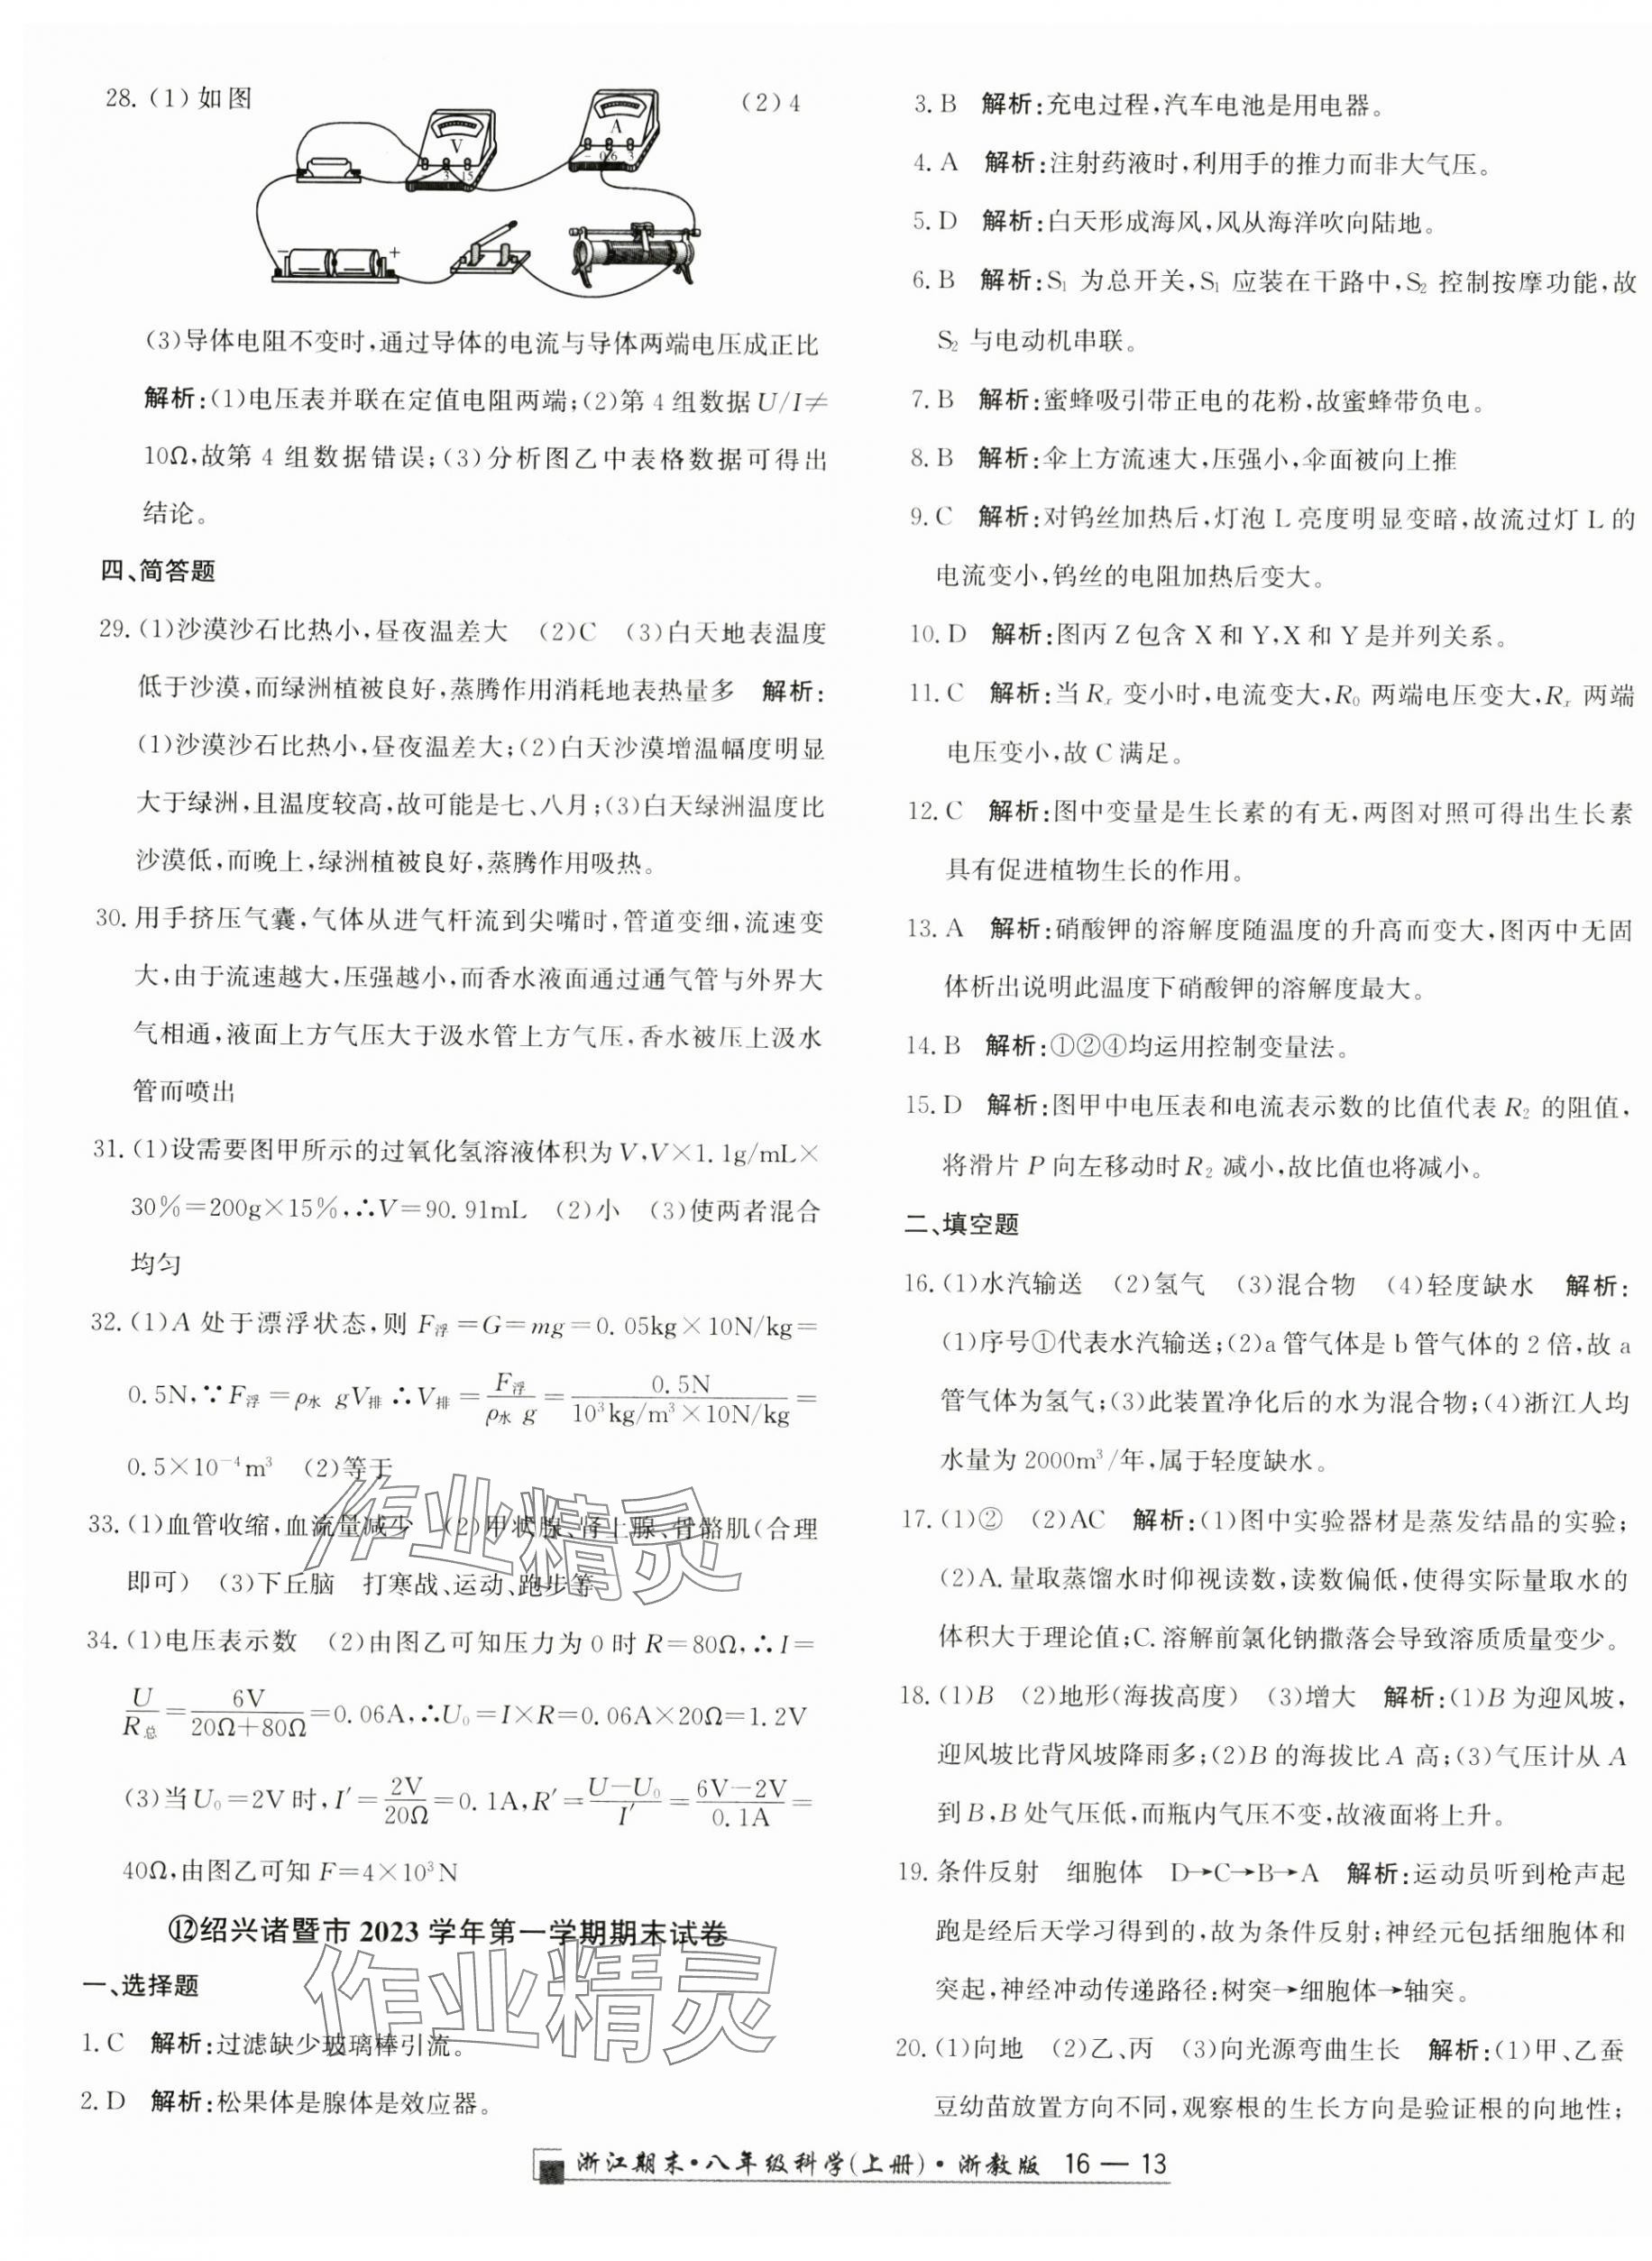 28. (1)如图 (2)4
V
3 15
A
- 0.6 3
- +
(3)导体电阻不变时,通过导体的电流与导体两端电压成正比
解析:(1)电压表并联在定值电阻两端;(2)第 4 组数据 U/I≠
10Ω,故第 4 组数据错误;(3)分析图乙中表格数据可得出
结论。
四、简答题
29. (1)沙漠沙石比热小,昼夜温差大 (2)C (3)白天地表温度
低于沙漠,而绿洲植被良好,蒸腾作用消耗地表热量多 解析:
(1)沙漠沙石比热小,昼夜温差大;(2)白天沙漠增温幅度明显
大于绿洲,且温度较高,故可能是七、八月;(3)白天绿洲温度比
沙漠低,而晚上,绿洲植被良好,蒸腾作用吸热。
30. 用手挤压气囊,气体从进气杆流到尖嘴时,管道变细,流速变
大,由于流速越大,压强越小,而香水液面通过通气管与外界大
气相通,液面上方气压大于汲水管上方气压,香水被压上汲水
管而喷出
31. (1)设需要图甲所示的过氧化氢溶液体积为 V,V×1.1g/mL×
30%=200g×15%,∴V=90.91mL (2)小 (3)使两者混合
均匀
32. (1)A 处于漂浮状态,则 F浮=G=mg=0.05kg×10N/kg=
0.5N,∵F浮=ρ水 gV排 ∴V排=F浮/(ρ水 g)=0.5N/(10³kg/m³×10N/kg)=
0.5×10⁻⁴m³ (2)等于
33. (1)血管收缩,血流量减少 (2)甲状腺、肾上腺、骨骼肌(合理
即可) (3)下丘脑 打寒战、运动、跑步等
34. (1)电压表示数 (2)由图乙可知压力为 0 时 R=80Ω,∴I=
U/R总=6V/(20Ω+80Ω)=0.06A,∴U₀=I×R=0.06A×20Ω=1.2V
(3)当 U₀=2V 时,I′=2V/20Ω=0.1A,R′=(U−U₀)/I′=(6V−2V)/0.1A=
40Ω,由图乙可知 F=4×10³N
⑫绍兴诸暨市 2023 学年第一学期期末试卷
一、选择题
1. C 解析:过滤缺少玻璃棒引流。
2. D 解析:松果体是腺体是效应器。
3. B 解析:充电过程,汽车电池是用电器。
4. A 解析:注射药液时,利用手的推力而非大气压。
5. D 解析:白天形成海风,风从海洋吹向陆地。
6. B 解析:S₁ 为总开关,S₁ 应装在干路中,S₂ 控制按摩功能,故
S₂ 与电动机串联。
7. B 解析:蜜蜂吸引带正电的花粉,故蜜蜂带负电。
8. B 解析:伞上方流速大,压强小,伞面被向上推
9. C 解析:对钨丝加热后,灯泡 L 亮度明显变暗,故流过灯 L 的
电流变小,钨丝的电阻加热后变大。
10. D 解析:图丙 Z 包含 X 和 Y,X 和 Y 是并列关系。
11. C 解析:当 Rₓ 变小时,电流变大,R₀ 两端电压变大,Rₓ 两端
电压变小,故 C 满足。
12. C 解析:图中变量是生长素的有无,两图对照可得出生长素
具有促进植物生长的作用。
13. A 解析:硝酸钾的溶解度随温度的升高而变大,图丙中无固
体析出说明此温度下硝酸钾的溶解度最大。
14. B 解析:①②④均运用控制变量法。
15. D 解析:图甲中电压表和电流表示数的比值代表 R₂ 的阻值,
将滑片 P 向左移动时 R₂ 减小,故比值也将减小。
二、填空题
16. (1)水汽输送 (2)氢气 (3)混合物 (4)轻度缺水 解析:
(1)序号①代表水汽输送;(2)a 管气体是 b 管气体的 2 倍,故 a
管气体为氢气;(3)此装置净化后的水为混合物;(4)浙江人均
水量为 2000m³/年,属于轻度缺水。
17. (1)② (2)AC 解析:(1)图中实验器材是蒸发结晶的实验;
(2)A. 量取蒸馏水时仰视读数,读数偏低,使得实际量取水的
体积大于理论值;C. 溶解前氯化钠撒落会导致溶质质量变少。
18. (1)B (2)地形(海拔高度) (3)增大 解析:(1)B 为迎风坡,
迎风坡比背风坡降雨多;(2)B 的海拔比 A 高;(3)气压计从 A
到 B,B 处气压低,而瓶内气压不变,故液面将上升。
19. 条件反射 细胞体 D→C→B→A 解析:运动员听到枪声起
跑是经后天学习得到的,故为条件反射;神经元包括细胞体和
突起,神经冲动传递路径:树突→细胞体→轴突。
20. (1)向地 (2)乙、丙 (3)向光源弯曲生长 解析:(1)甲、乙蚕
豆幼苗放置方向不同,观察根的生长方向是验证根的向地性;
浙江期末·八年级科学(上册)·浙教版 16 — 13
作业精灵
作业精灵